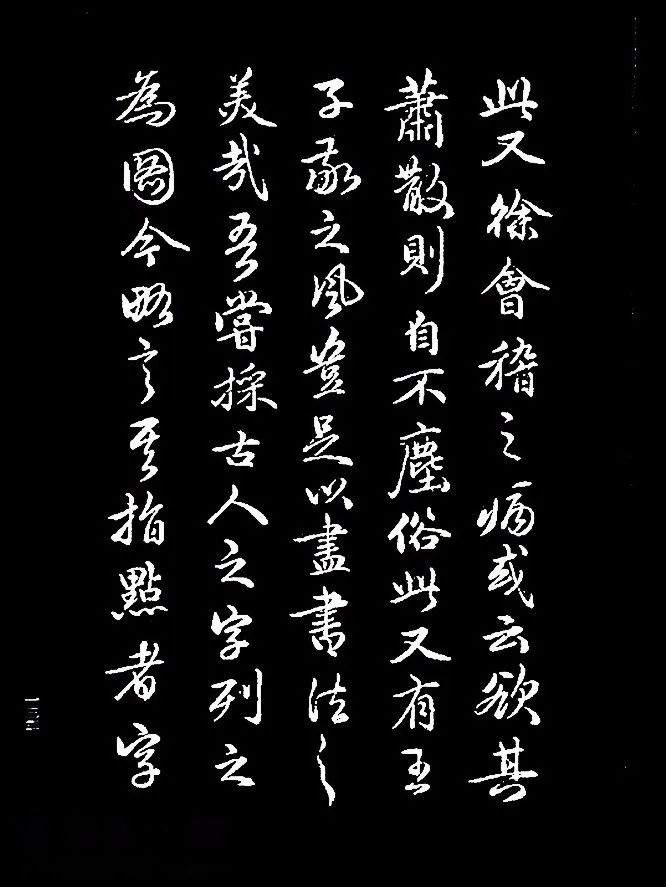 此又徐會稽之病或云欲其
蕭散則自不塵俗此又有王
子敬之風豈足以盡書法之
美哉吾嘗採古人之字列之
為圖今略言其指點者字